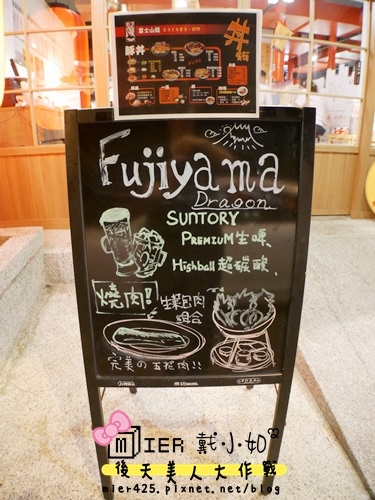 富士山龍
丼飯
豚丼
Fujiyama
Dragon
SUNTORY
PREMIUM生啤、
Highball超碳酸、
燒肉!
生菜包肉
組合
完美の五花肉!!
MIER 戴小如
後天美人大作戰
mier425.pixnet.net/blog